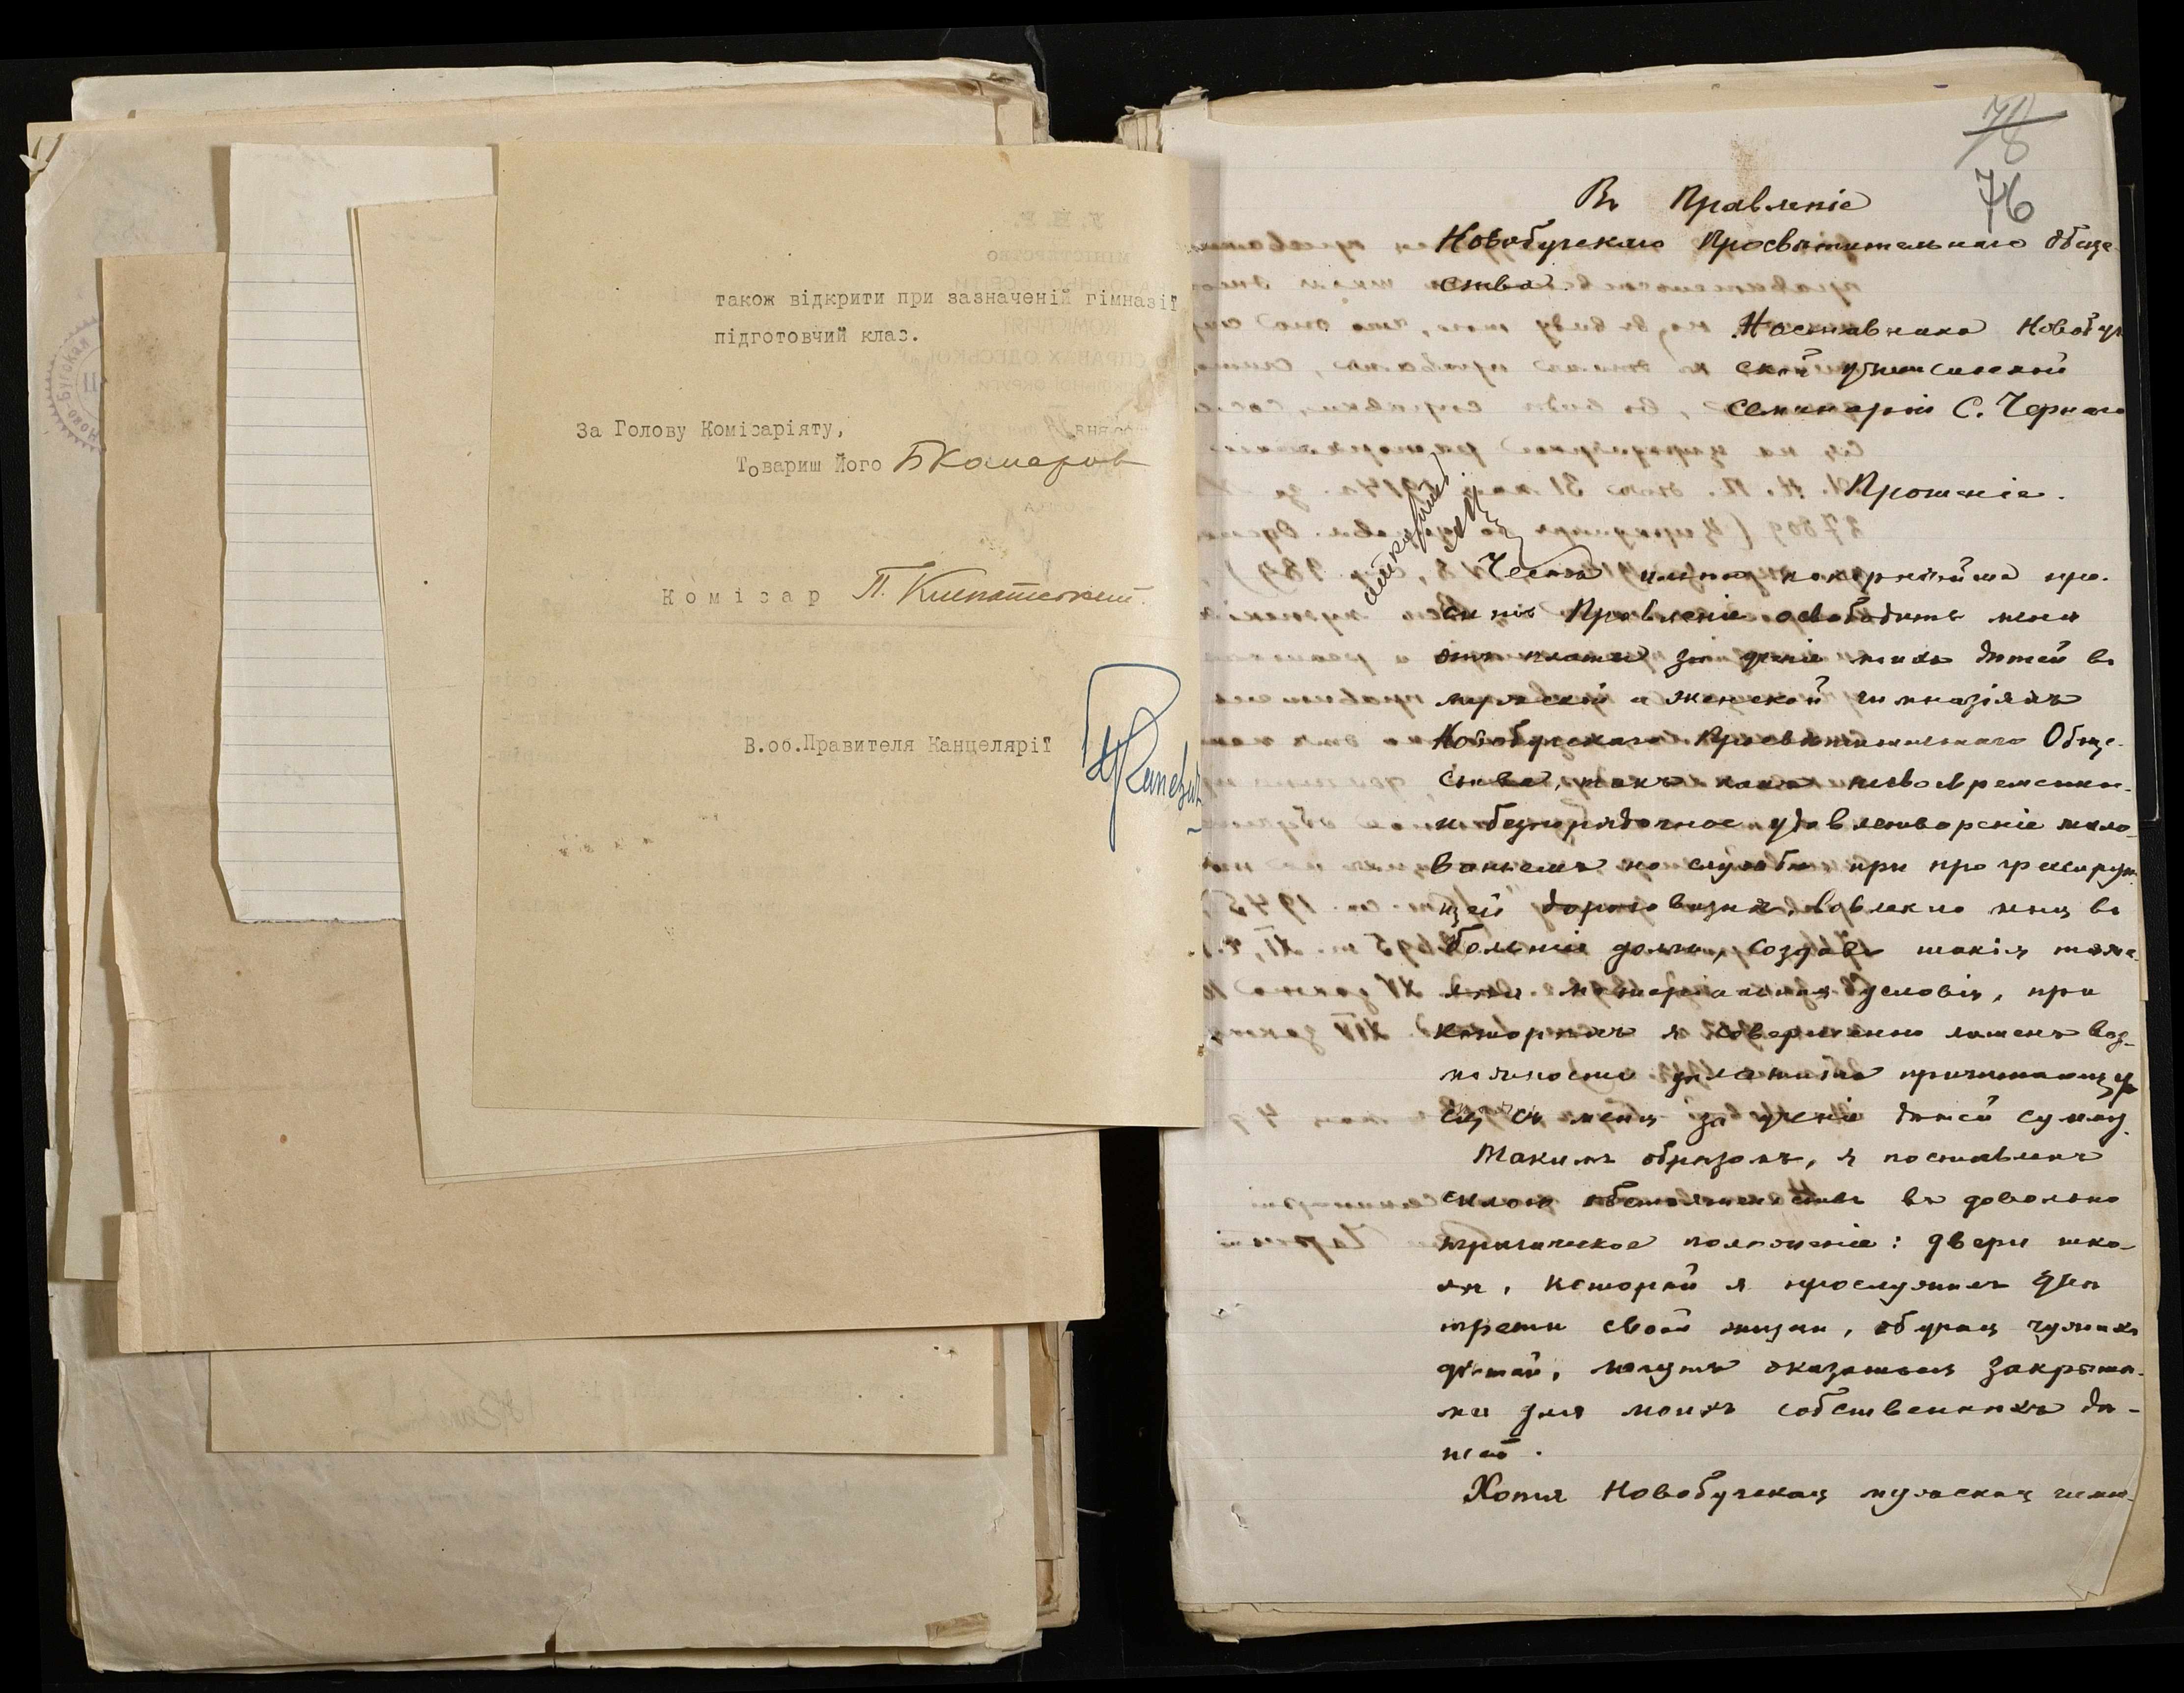 також відкрити при зазначеній гімназії
підготовчий клас.
За Голову Комісаріяту,
Товариш Його БКомаров
Комісар П.
В.об.Правителя Канцелярії
Ново Бугская
78
76
Въ Правленіе
Новобугскаго Просвѣтительнаго Обще-
ства.
Наставника Новобуг
ской учительской
семинаріи С. Чернаго
Прошеніе.
Честь имѣю покорнѣйше про-
сить Правленіе освободить меня
отъ платы за ученіе моихъ дѣтей въ
мужской и женской гимназіяхъ
Новобугскаго Просвѣтительнаго Обще-
ства, такъ какъ несвоевременное
и безпорядочное удовлетвореніе жало-
ваньемъ по службѣ при прогрессирую
щей дороговизнѣ, вовлекло меня въ
большіе долги, создавъ такія тяже-
лыя матеріальныя условія, при
которыхъ я совершенно лишенъ воз-
можности уплатить причитающую
ся съ меня за ученіе дѣтей сумму.
Такимъ образомъ, я поставленъ
силою обстоятельствъ въ довольно
трагическое положеніе: двери шко-
лы, которой я прослужилъ двѣ
трети своей жизни, обучая чужихъ
дѣтей, могутъ оказаться закрыты-
ми для моихъ собственныхъ дѣ-
тей.
Хотя Новобугская мужская гимн-